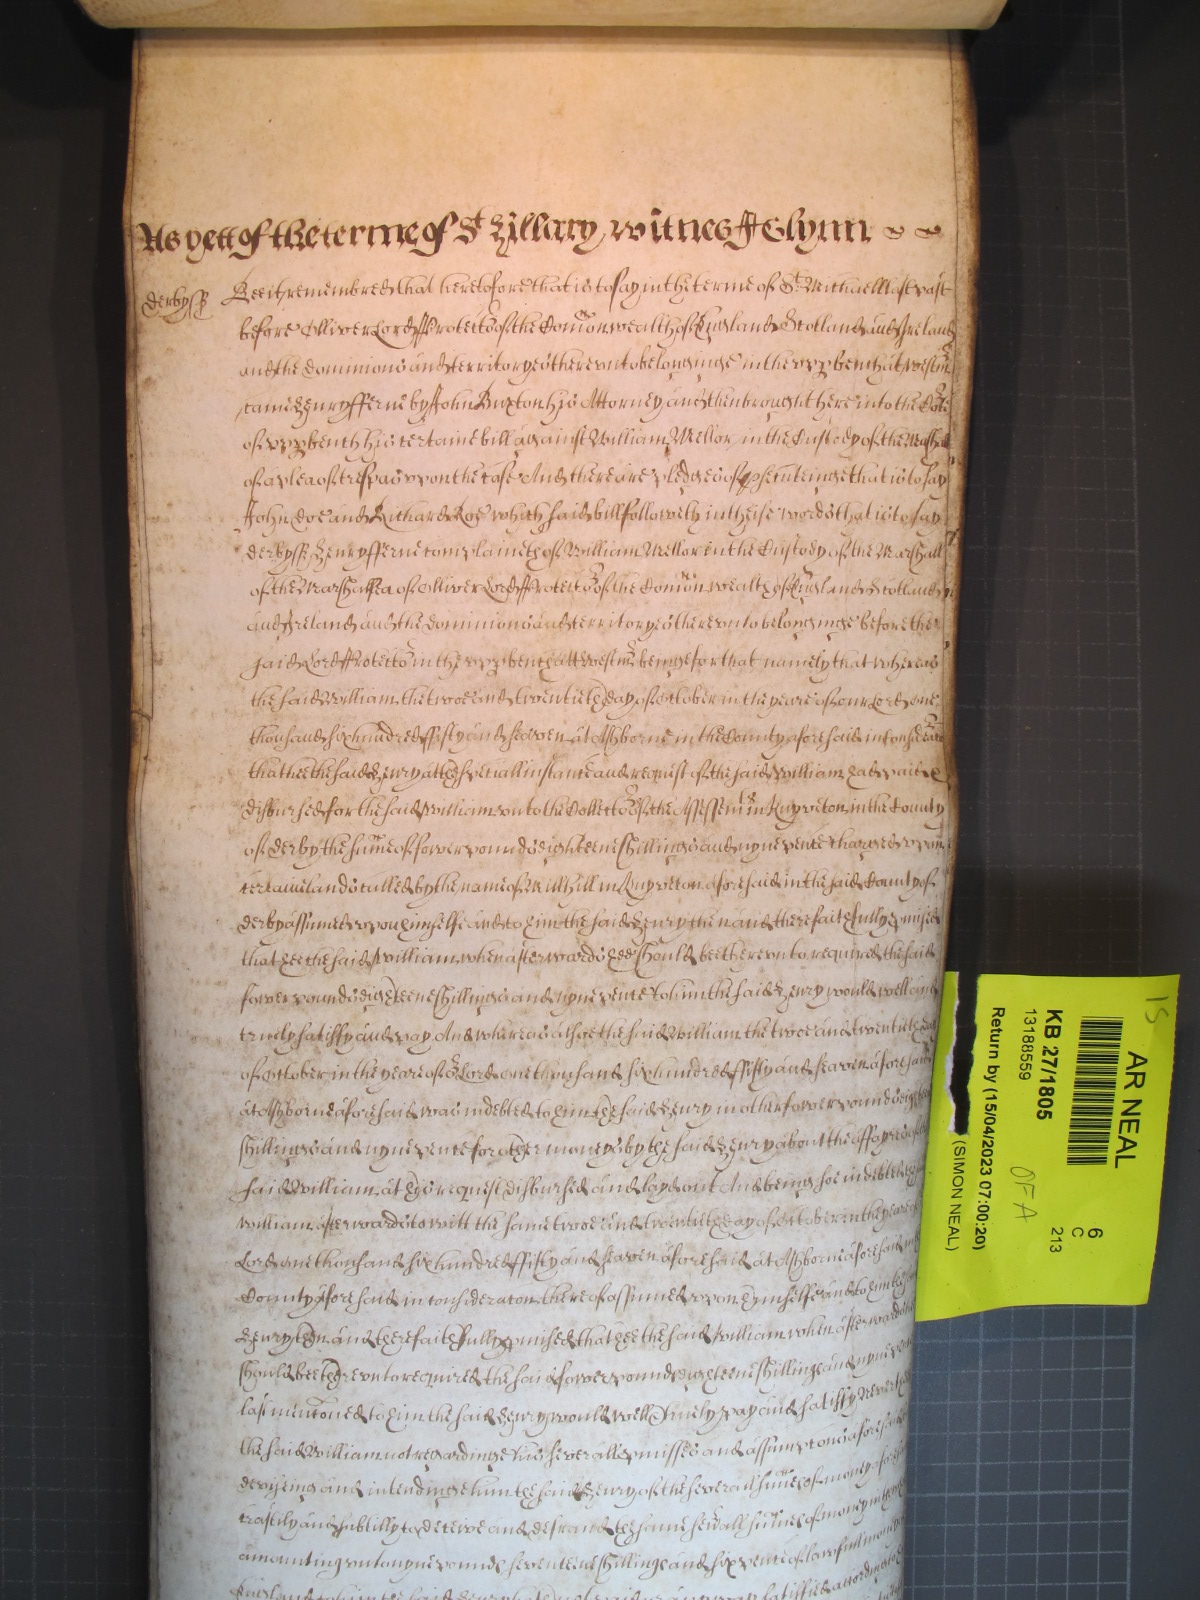 As yett of the terme of St Hillary witnes J Glynn
Derbyss Bee it remembred that heretofore that is to say in the terme of St Michaell last past
before Olliver Lord Protector of the Comonwealth of England Scotland and Ireland
and the dominions and territoryes thereunto belonginge in the upp bench at Westm
came Henry fferne by John Buxton his Attorney and then brought here into the Court
of upp bench his certaine bill against William Mellor in the Custody of the Marshall
of a plea of trespas uppon the case And there are pledges of psecuteinge that is to say
John Doe and Richard Roe which said bill followeth in theise words that is to say
Derbyss Henry fferne complaineth of William Mellor in the Custody of the Marshall
of the Marshallsea of Olliver Lord Protector of the Comonwealth of England Scotland
and Ireland and the dominions and territoryes thereunto belonginge before the
said Lord Protector in the upp bench att Westmr beinge for that namely that whereas
the said William the twoe and twentieth day of October in the yeare of our Lord one
thousand six hundred fifty and seaven at Ashborne in the County aforesaid in consideraton
that hee the said Henry att the speciall instance and request of the said William had paid &
disbursed for the said William unto the Collector of the Assessemts in Knyveton in the County
of Derby the sume of fower pounds eighteene shillings and nyne pence charged uppon
certaine lands called by the name of Millhill in Knyveton aforesaid in the said County of
Derby assumed uppon himselfe and to him the said Henry then and there faithfully pmised
that hee the said William when afterwards hee should bee thereunto required the said
fower pounds eighteene shillings and nyne pence to him the said Henry would well and
truely satisfy and pay And whereas alsoe the said William the twoe and twentieth day
of October in the yeare of or Lord one thousand six hundred fifty and seaven aforesaid
at Ashborne aforesaid was indebted to him the said Henry in other fower pounds eighteene
shillings and nyne pence for other moneys by the said Henry about the affayres of the
said William at his request disbursed and layd out And being soe indebted the said
William afterwards to witt the same twoe and twentieth day of October in the yeare of
Lord one thousand six hundred fifty and seaven aforesaid at Ashborne aforesaid in the
County aforesaid in consideraton thereof assumed uppon himselfe and to him the said
Henry then and there faithfully pmised that hee the said William when afterwards
should bee thereunto required the said fower pounds eighteene shillings and nyne pence
last mentoned to him the said Henry would well & truely pay and satisfy Neverthelesse
the said William not regardinge his severall pmisses and assumptons aforesaid
deviseing and intendinge him the said Henry of the severall sumes of money aforesaid
craftily and subtilly to deceive and defraud the same severall sumes of money in the whole
amounting unto nyne pounds seventeene shillings and six pence of lawfull money of
England to him the said Henry hath not paid
15
AR NEAL
6
C
213
KB 27/1805
13188559
OFA
Return by (15/04/2023 07:00:20)
(SIMON NEAL)